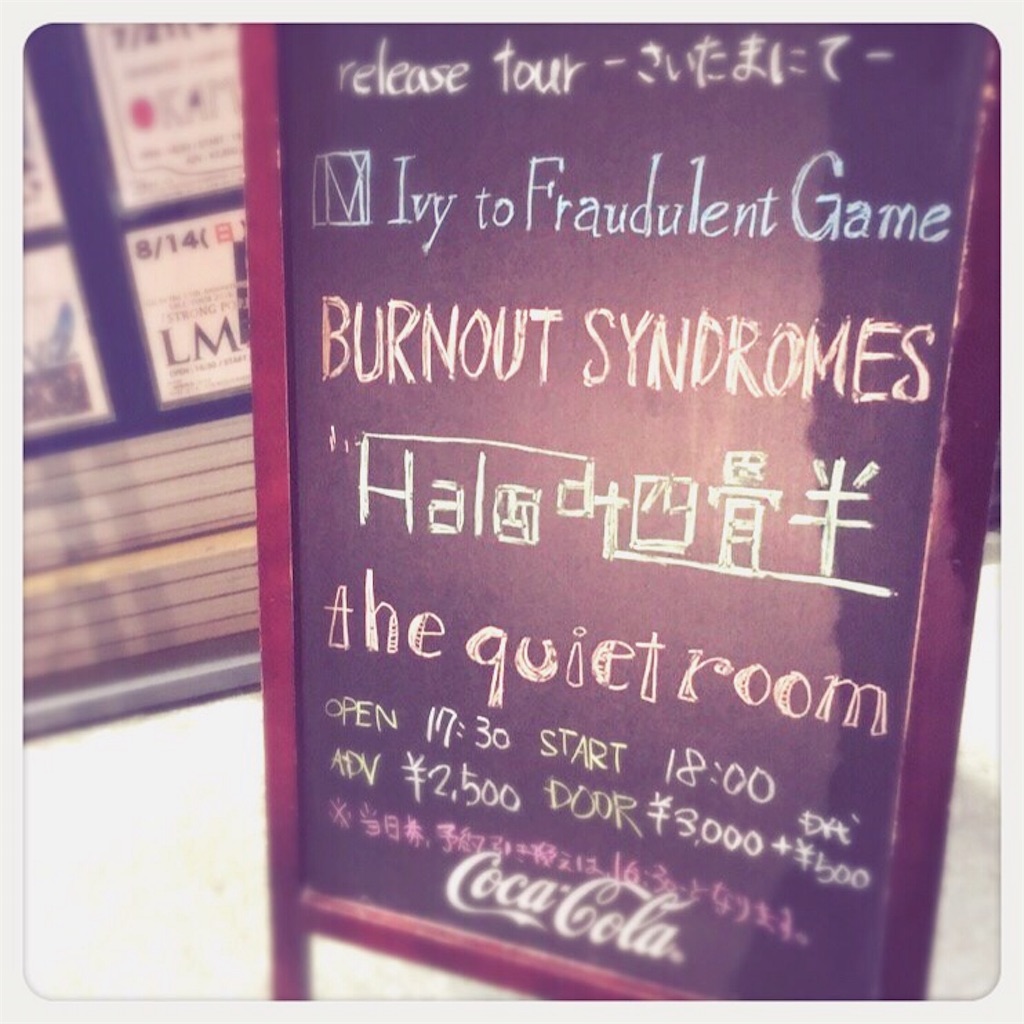 release tour -さいたまにて-
Ivy to Fraudulent Game
BURNOUT SYNDROMES
Halo at 四畳半
the quiet room
OPEN 17:30 START 18:00
ADV ¥2,500 DOOR ¥3,000 +¥500
※当日券、予約引き換えは16:30となります。
Coca-Cola
8/14(日)
STRONG
LM